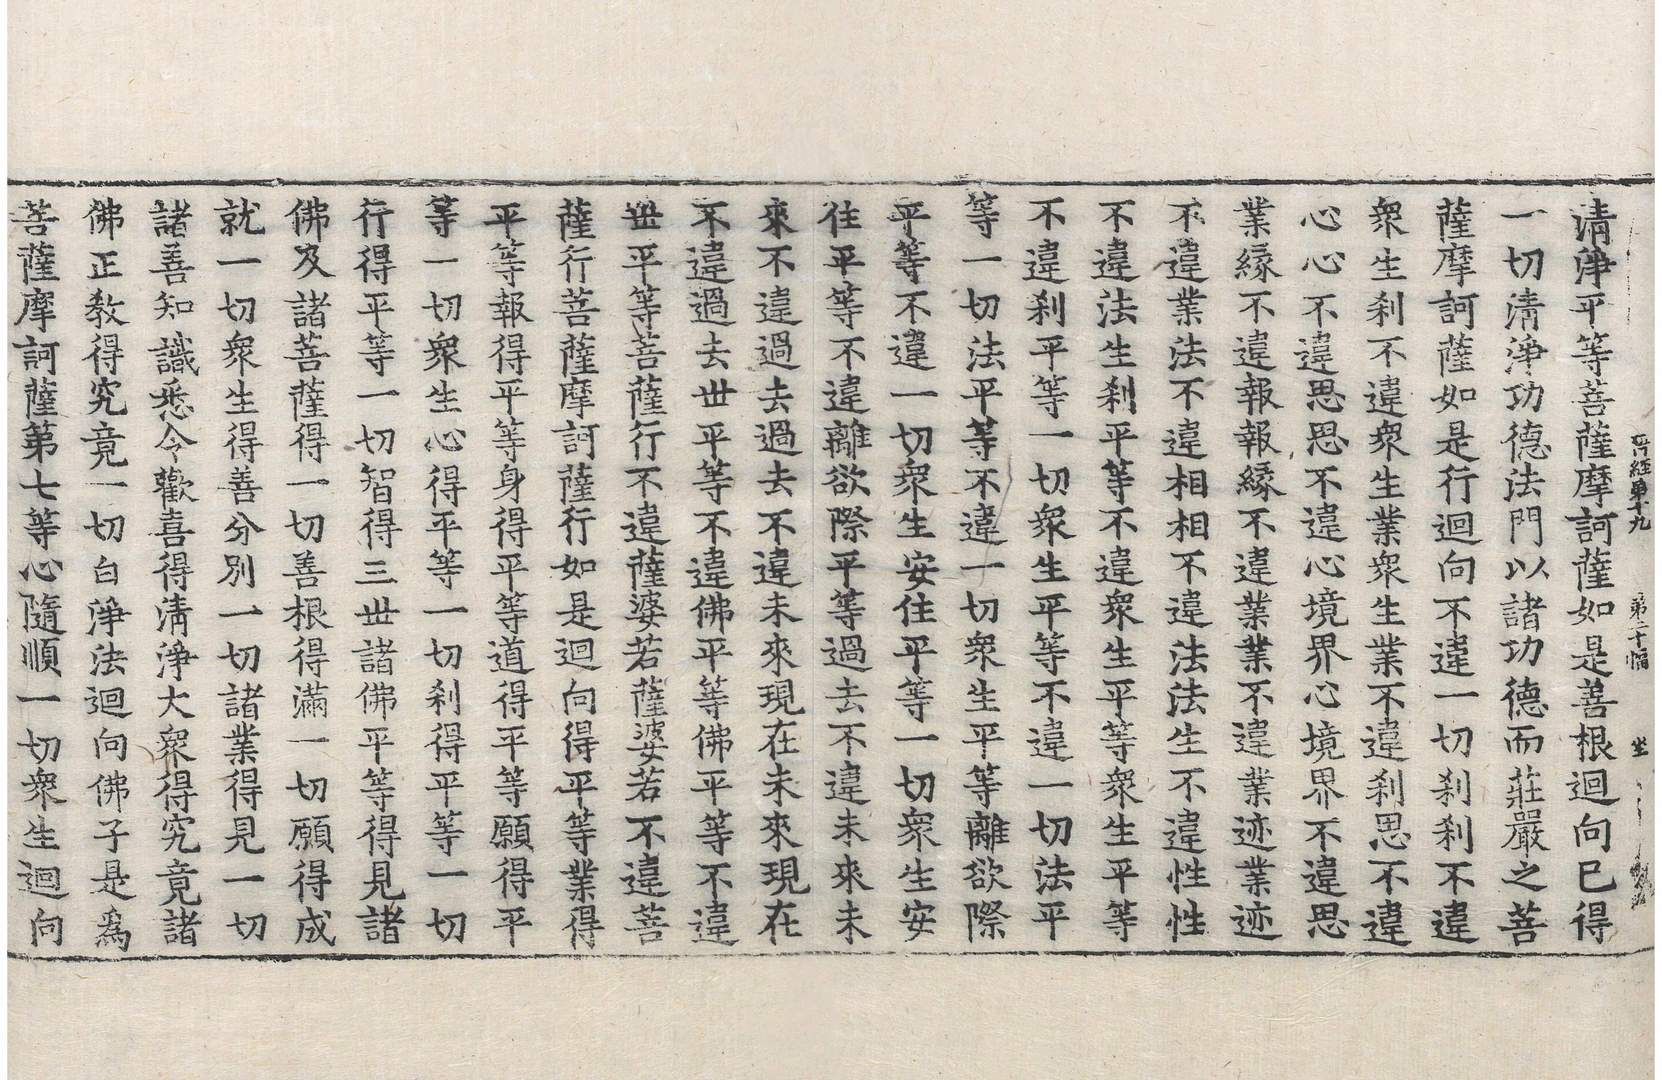 清淨平等菩薩摩訶薩如是善根迴向已得
一切清淨功德法門以諸功德而莊嚴之菩
薩摩訶薩如是行迴向不違一切刹刹不違
衆生刹不違衆生業衆生業不違刹思不違
心心不違思思不違心境界心境界不違思
業縁不違報報縁不違業業不違業迹業迹
不違業法不違相相不違法法生不違性性
不違法生刹平等不違衆生平等衆生平等
不違刹平等一切衆生平等不違一切法平
等一切法平等不違一切衆生平等離欲際
平等不違一切衆生安住平等一切衆生安
住平等不違離欲際平等過去不違未來未
來不違過去過去不違未來現在未來現在
不違過去世平等不違佛平等佛平等不違
世平等菩薩行不違薩婆若薩婆若不違菩
薩行菩薩摩訶薩行如是迴向得平等業得
平等報得平等身得平等道得平等願得平
等一切衆生心得平等一切刹得平等一切
行得平等一切智得三世諸佛平等得見諸
佛及諸菩薩得一切善根得滿一切願得成
就一切衆生得善分別一切諸業得見一切
諸善知識悉令歡喜得清淨大衆得究竟諸
佛正教得究竟一切白淨法迴向佛子是爲
菩薩摩訶薩第七等心隨順一切衆生迴向